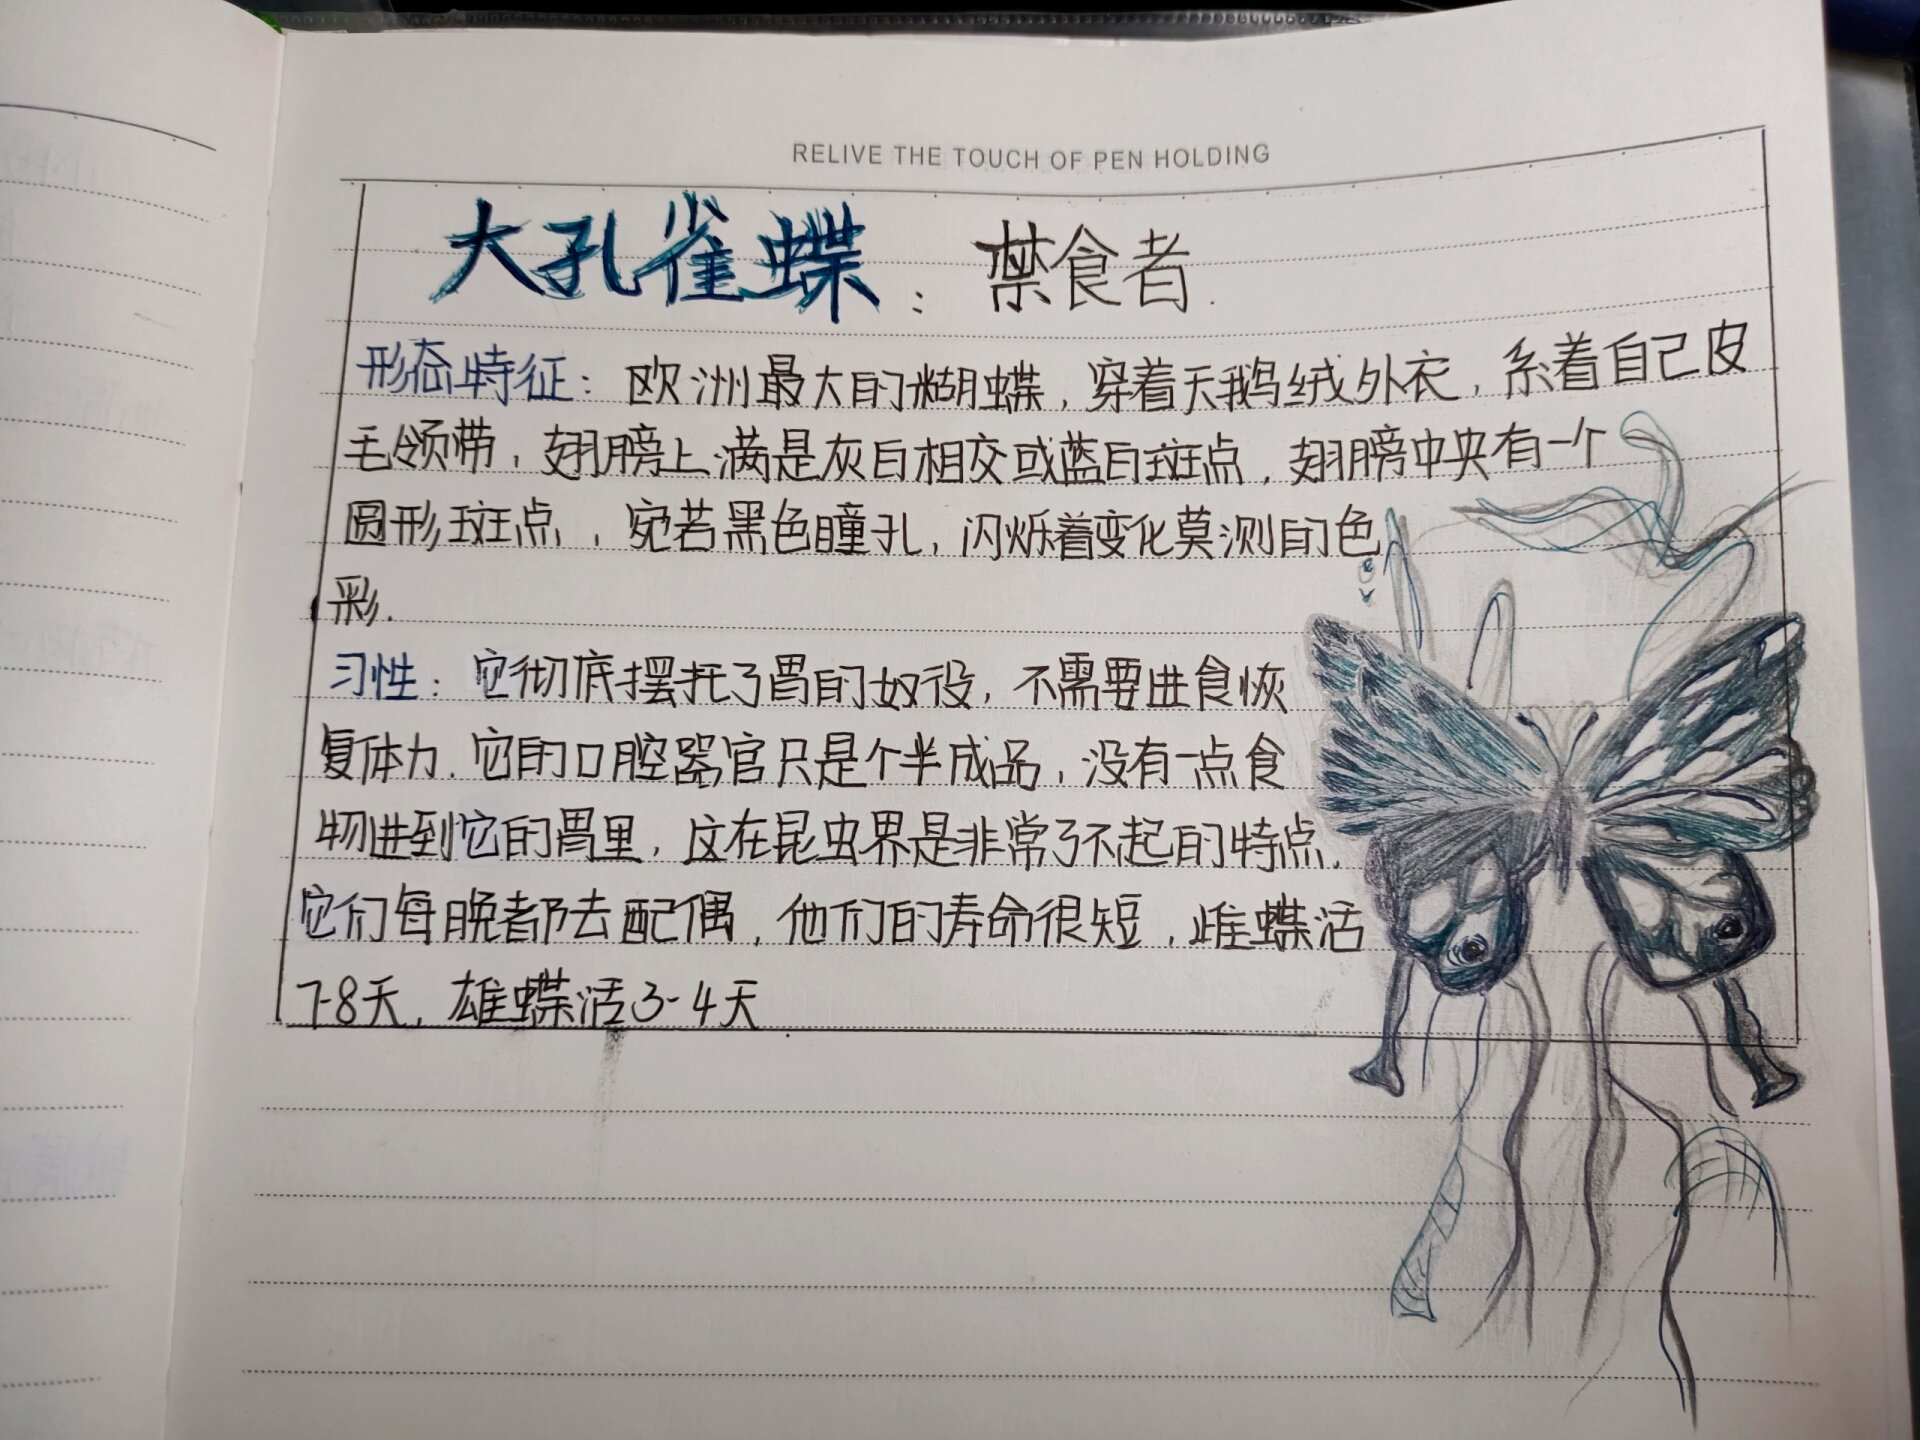 RELIVE THE TOUCH OF PEN HOLDING
大孔雀蝶：禁食者.
形态特征：欧洲最大的糊蝶，穿着天鹅绒外衣，系着自己皮
毛领带，翅膀上满是灰白相交或蓝白斑点，翅膀中央有一个
圆形斑点，宛若黑色瞳孔，闪烁着变化莫测的色
彩.
习性：它彻底摆托了胃的奴役，不需要进食恢
复体力.它的口腔器官只是个半成品，没有一点食
物进到它的胃里，这在昆虫界是非常了不起的特点.
它们每晚都去配偶，他们的寿命很短，雌蝶活
7-8天，雄蝶活3-4天